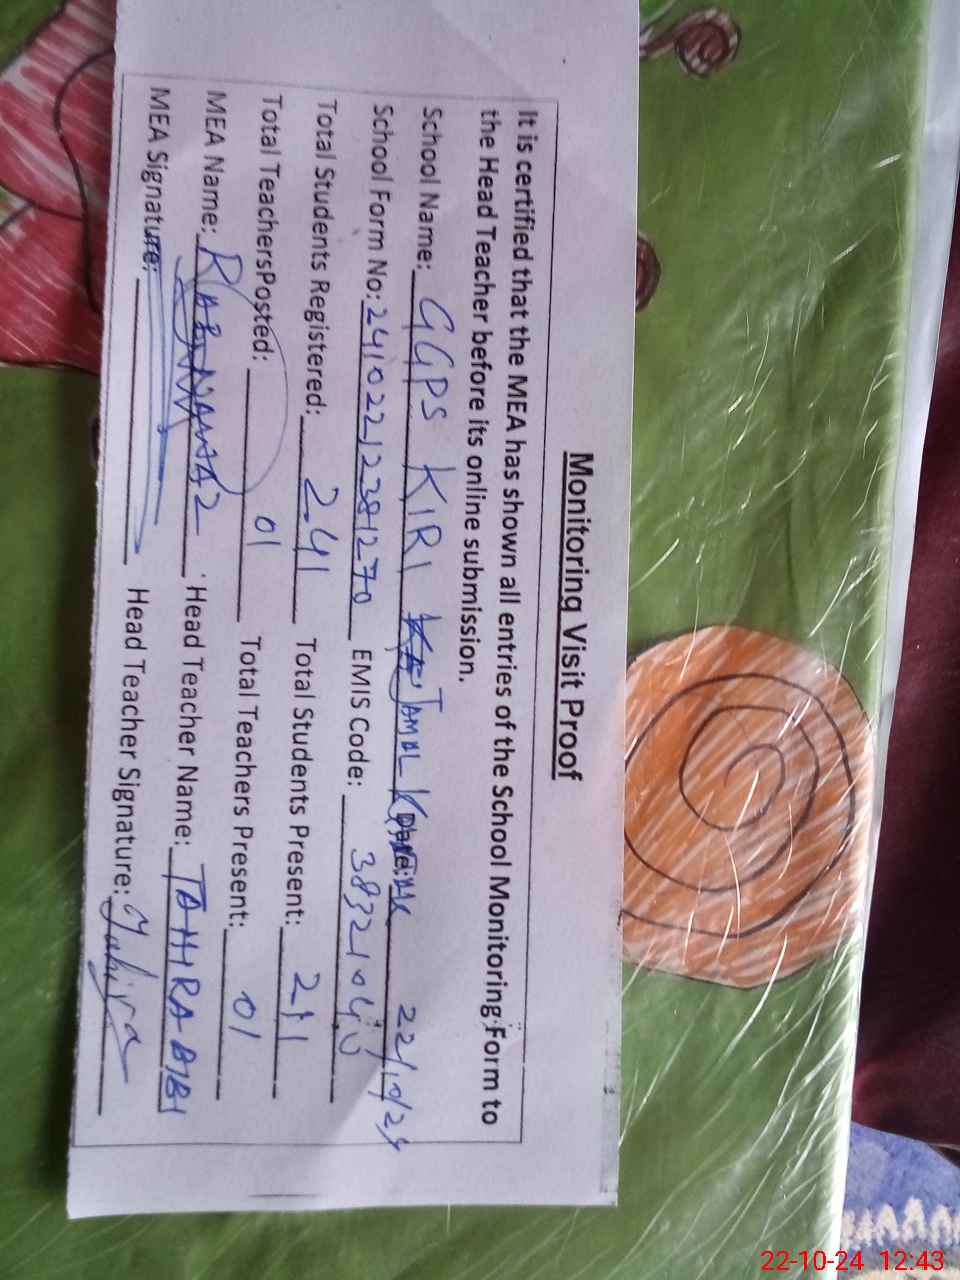 Monitoring Visit Proof
It is certified that the MEA has shown all entries of the School Monitoring Form to
the Head Teacher before its online submission.
School Name: GGPS KIRI JAMAL Date: 22/10/24
School Form No: 24102212381270 EMIS Code: 38321040
Total Students Registered: 241 Total Students Present: 211
Total TeachersPosted: 01 Total Teachers Present: 01
MEA Name: RAB NAWAZ Head Teacher Name: TAHIRA BIBI
MEA Signature: Head Teacher Signature: Tahira
22-10-24 12:43